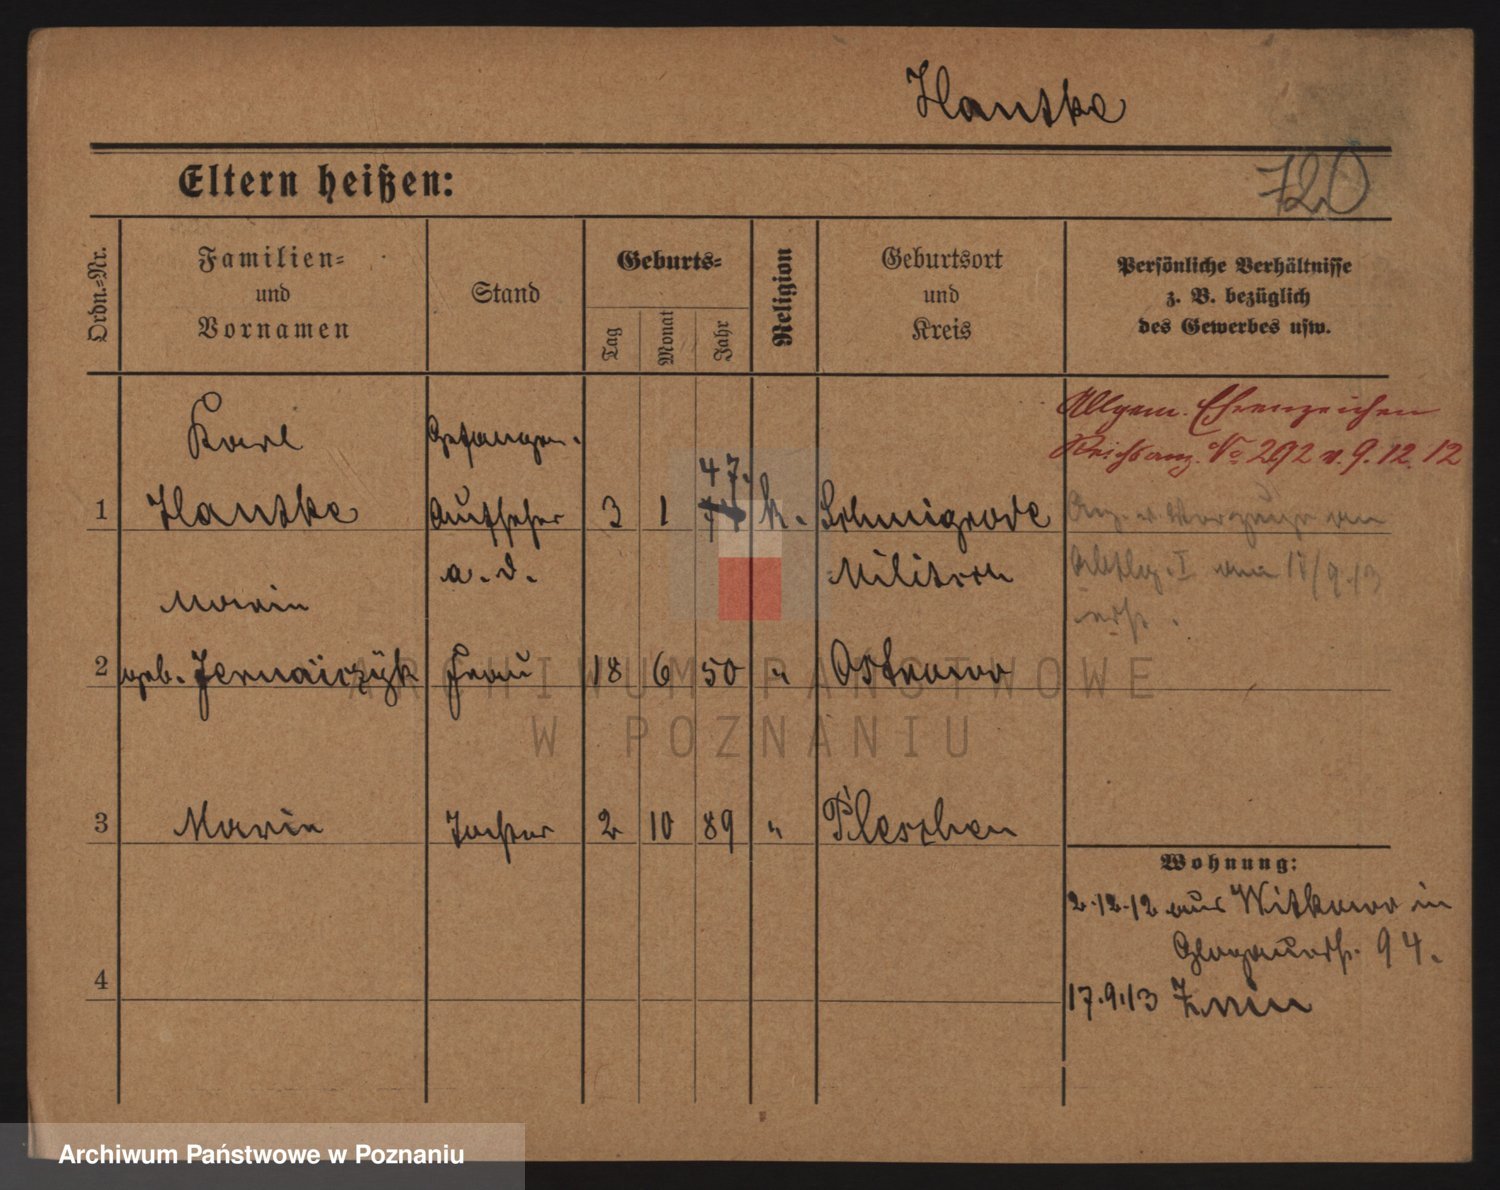 Hantke
720
Eltern heißen:
Ordn.-Nr.
Familien-
und
Vornamen
Stand
Geburts-
Tag
Monat
Jahr
Religion
Geburtsort
und
Kreis
Persönliche Verhältnisse
z. B. bezüglich
des Gewerbes usw.
Allgem. Ehrenzeichen
Reichsanz. No 292 v. 9.12.12
Karl Gefangen-
47.
1 Hantke Aufseher 3 1 k. Schmigrode
a. D. Militsch
Marie
2 geb. Frau 18 6 50 " Ostrowo
3 Marie Tochter 2 10 89 " Pleschen
4
17/9.13
Wohnung:
2.12.12 aus Witkowo in
Glogauerstr. 94.
17.9.13 Znin
ARCHIWUM PAŃSTWOWE
W POZNANIU
Archiwum Państwowe w Poznaniu